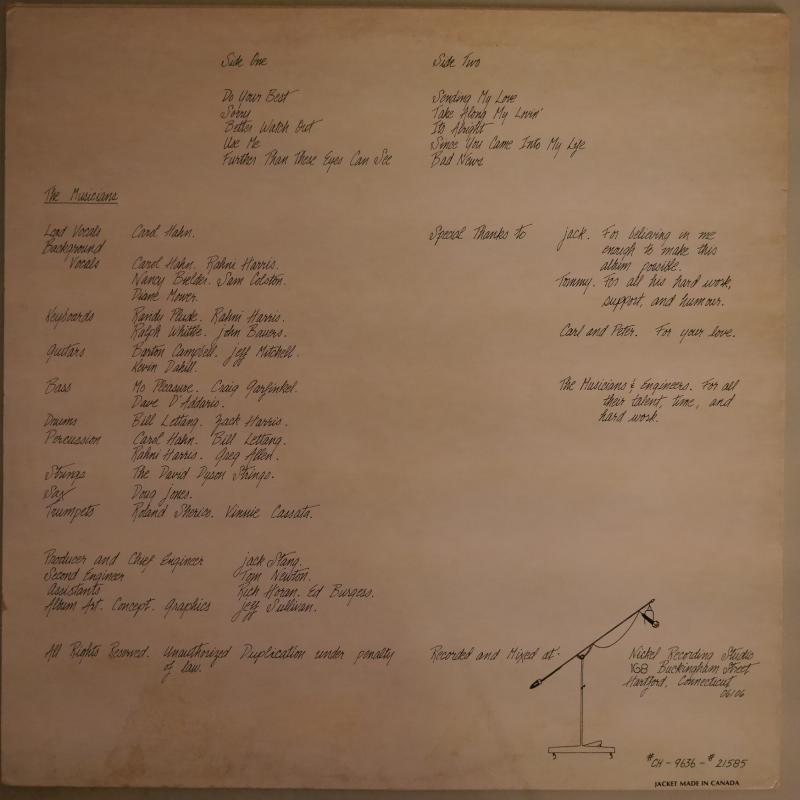 Side One
Do Your Best
Sorry
Better Watch Out
Use Me
Further Than These Eyes Can See
Side Two
Sending My Love
Take Along My Lovin'
Its Alright
Since You Came Into My Life
Bad News
The Musicians
Lead Vocals Carol Hahn.
Background
Vocals Carol Hahn. Rahni Harris.
Nancy Bielder. Sam Colston.
Diane Mower.
Keyboards Randy Plude. Rahni Harris.
Ralph Whittle. John Bauers.
Guitars Barton Campbell. Jeff Mitchell.
Kevin Dahill.
Bass Mo Pleasure. Craig Garfinkel.
Dave D'Addario.
Drums Bill Lettang. Zack Harris.
Percussion Carol Hahn. Bill Lettang.
Rahni Harris. Greg Allen.
Strings The David Dyson Strings.
Sax Doug Jones.
Trumpets Roland Vinnie Cassata.
Special Thanks to Jack. For believing in me
enough to make this
album possible.
Tommy. For all his hard work,
support, and humour.
Carl and Peter. For your love.
The Musicians & Engineers. For all
their talent, time, and
hard work.
Producer and Chief Engineer Jack Stang.
Second Engineer Tom Newton.
Assistants Rich Horan. Ed Burgess.
Album Art. Concept. Graphics Jeff Sullivan.
All Rights Reserved. Unauthorized Duplication under penalty
of law.
Recorded and Mixed at:
Nickel Recording Studio
168 Buckingham Street
Hartford, Connecticut
06106
#CH-9636-#21585
JACKET MADE IN CANADA